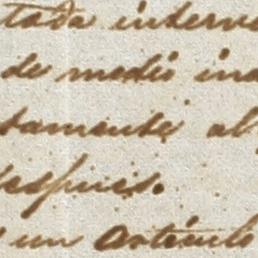 tada interve
de medio ind
samente al
despues.
un artículo